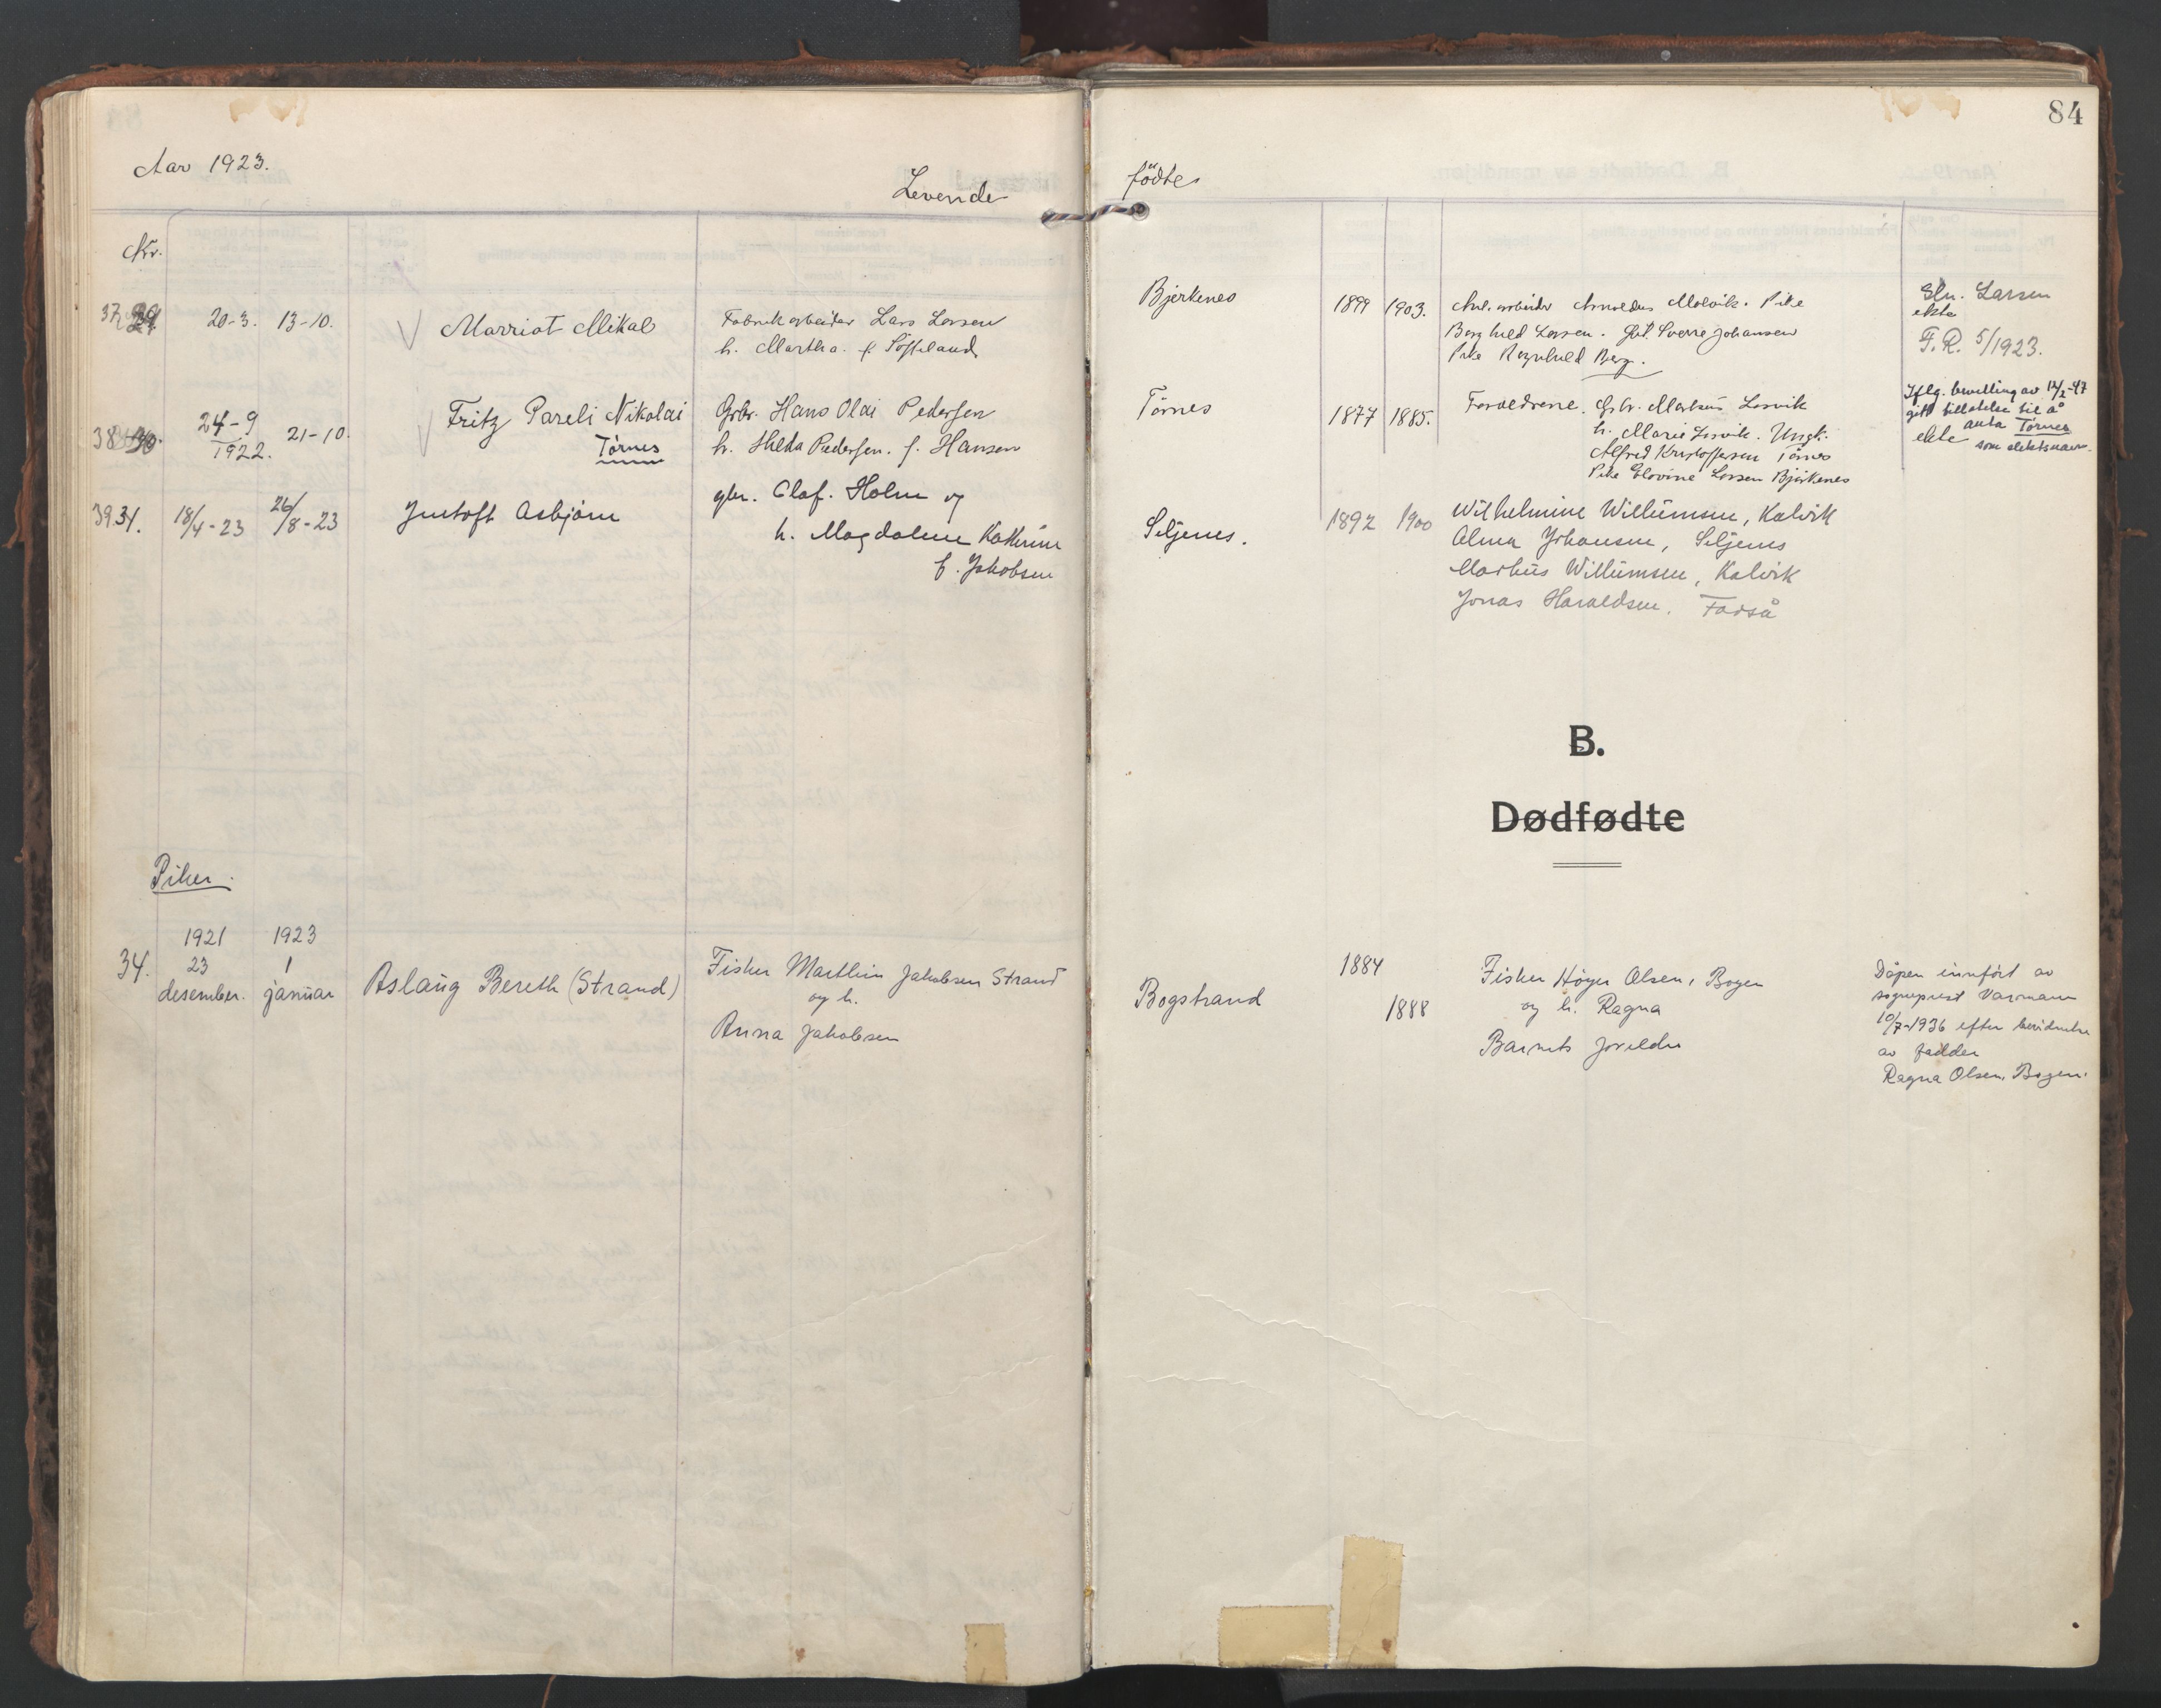 84
Aar 1923.
Levende fødte
Nr.
37 20-3. 13-10. Marriot Mikal
Fabrikarbeider Lars Larsen
h. Martha f. Softeland
Bjerkenes
1899 1903.
Anl. arbeider Arnoldus Molvik. Pike
Borghild Larsen. Gut. Sverre Johansen
Pike Ragnhild Berg.
Larsen
ekte
F.R. 5/1923.
38 24-9 1922. 21-10. Fritz Pareli Nikolai
Tørnes
Grbr. Hans Olai Pedersen
h. Hilda Pedersen. f. Hansen
Tørnes
1877 1885.
Foreldrene. Grbr. Markus Losvik
h. Marie Losvik. Ungk.
Alfred Kristoffersen Tørnes
Pike Elovine Larsen Bjørkenes
Iflg. bevilling av
gitt tillatelse til å
anta Tørnes
ekte som slektsnavn.
39 31. 18/4-23 26/8-23 Gustaft Asbjørn
gbr. Olaf. Holm og
h. Magdalene Kathrine
f. Jakobsen
Seljenes.
1892 1900
Wilhelmine Willumsen, Kalvik
Alma Johansen, Seljenes
Markus Willumsen, Kalvik
Jonas Haraldsen. Forså
B.
Dødfødte
Piker.
34. 1921 23 desember. 1923 1 januar
Aslaug Bereth (Strand)
Fisker Marthin Jakobsen Strand
og h.
Anna Jakobsen
Bogstrand
1884
1888
Fisker Høyer Olsen, Bogen
og h. Ragna
Barnets foreldre
Dåpen innført av
sogneprest Varmann
10/7-1936 efter bevidnelse
av fadder
Ragna Olsen, Bogen.